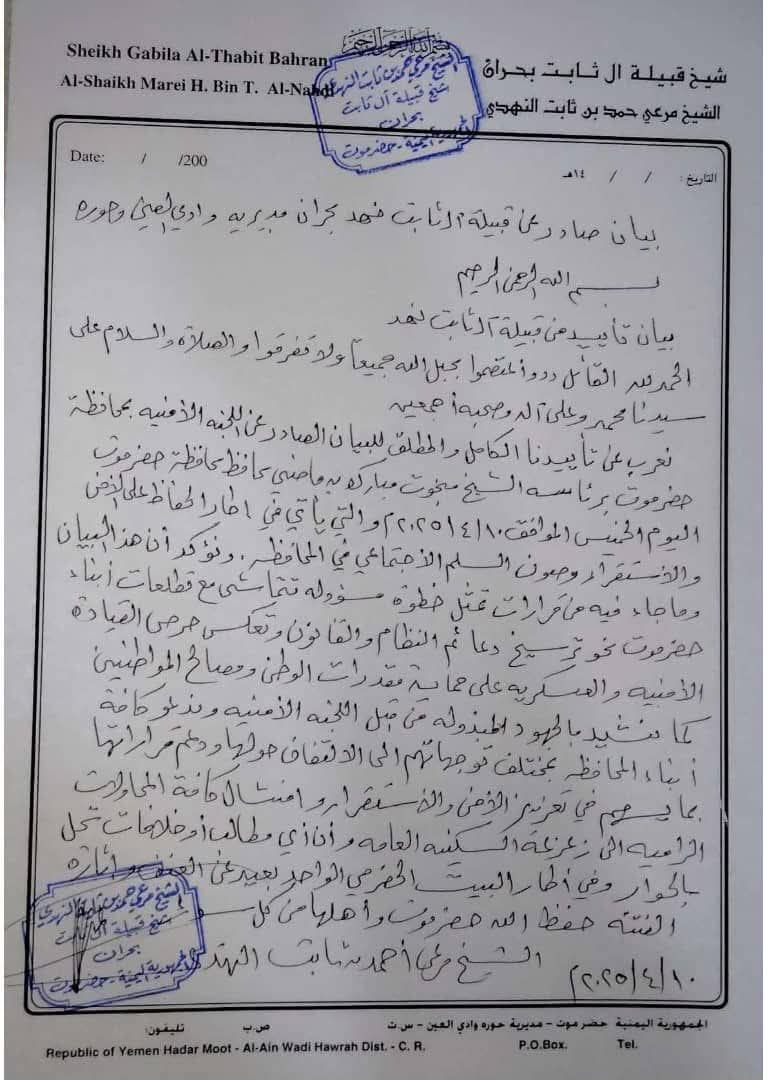 بسم الله الرحمن الرحيم
Sheikh Gabila Al-Thabit Bahran
Al-Shaikh Marei H. Bin T. Al-Nahdi
شيخ قبيلة ال ثابت بحران
الشيخ مرعي حمد بن ثابت النهدي
الشيخ مرعي حمد بن ثابت النهدي
شيخ قبيلة آل ثابت
بحران
الجمهورية اليمنية - حضرموت
Date: / /200
التاريخ: / / ١٤هـ
بيان صادر عن قبيلة آل ثابت نهد بحران مديريه وادي العين وحوره
بسم الله الرحمن الرحيم
بيان تأييد من قبيلة آل ثابت نهد
الحمدلله القائل وواعتصموا بحبل الله جميعا ولا تفرقوا والصلاة والسلام على
سيدنا محمد وعلى آله وصحبه أجمعين
نعرب عن تأييدنا الكامل والمطلق للبيان الصادر عن اللجنه الأمنيه بمحافظة
حضرموت برئاسه الشيخ مبخوت مبارك بن ماضي محافظ محافظة حضرموت
اليوم الخميس الموافق ٢٠٢٥/٤/١٠م والتي يأتي في اطار الحفاظ على الأمن
والاستقرار وصون السلم الاجتماعي في المحافظه. ونؤكد أن هذا البيان
وماجاء فيه من قرارات تمثل خطوة مسؤوله تتماشى مع تطلعات أبناء
حضرموت نحو ترسيخ دعائم النظام والقانون وتعكس حرص القيادة
الأمنيه والعسكريه على حماية مقدرات الوطن ومصالح المواطنين
كما نشيد بالجهود المبذوله من قبل اللجنه الأمنيه وندعو كافة
أبناء المحافظه بمختلف توجهاتهم الى الالتفاف حولها ودعم قراراتها
بما يسهم في تعزيز الأمن والاستقرار وافشال كافة المحاولات
الراميه الى زعزعة السكينه العامه وأن أي مطالب أو خلافات تحل
بالحوار وفي أطار البيت الحضرمي الواحد بعيد عن العنف وإثارة
الفتنه حفظ الله حضرموت وأهلها من كل
الشيخ مرعي أحمد بن ثابت النهد
٢٠٢٥/٤/١٠م
الشيخ مرعي حمد بن ثابت النهدي
شيخ قبيلة آل ثابت
بحران
الجمهورية اليمنية - حضرموت
الجمهورية اليمنية حضر موت – مديرية حوره وادي العين – س.ت ص.ب تليفون:
Republic of Yemen Hadar Moot - Al-Ain Wadi Hawrah Dist. - C. R. P.O.Box. Tel.